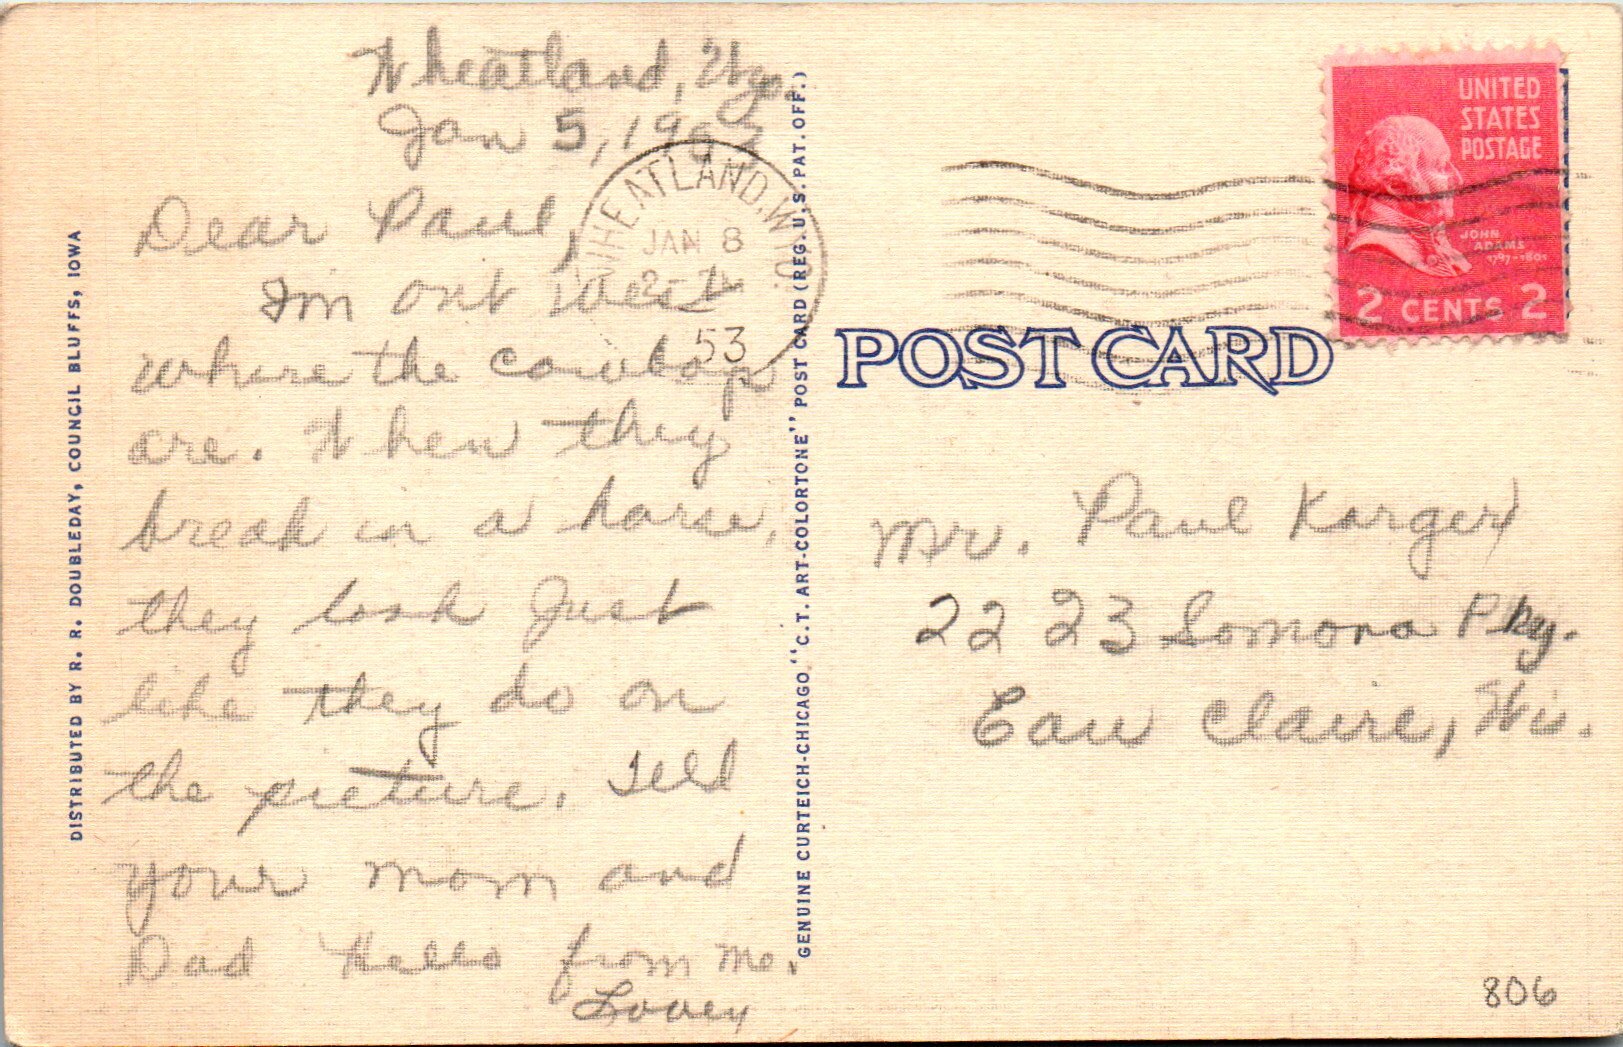 Wheatland, Wyo.
Jan 5, 1953
Dear Paul,
Im out West
where the cowboys
are. When they
break in a horse,
they look Just
like they do on
the picture. Tell
your mom and
Dad Hello from me.
Lovey
WHEATLAND, WYO.
JAN 8
2-
53
DISTRIBUTED BY R. R. DOUBLEDAY, COUNCIL BLUFFS, IOWA
GENUINE CURTEICH-CHICAGO "C.T. ART-COLORTONE" POST CARD (REG. U.S. PAT. OFF.)
UNITED
STATES
POSTAGE
JOHN
ADAMS
1797-1801
2 CENTS 2
POST CARD
Mr. Paul Karger
2223 Somona Pky.
Eau Claire, Wis.
806